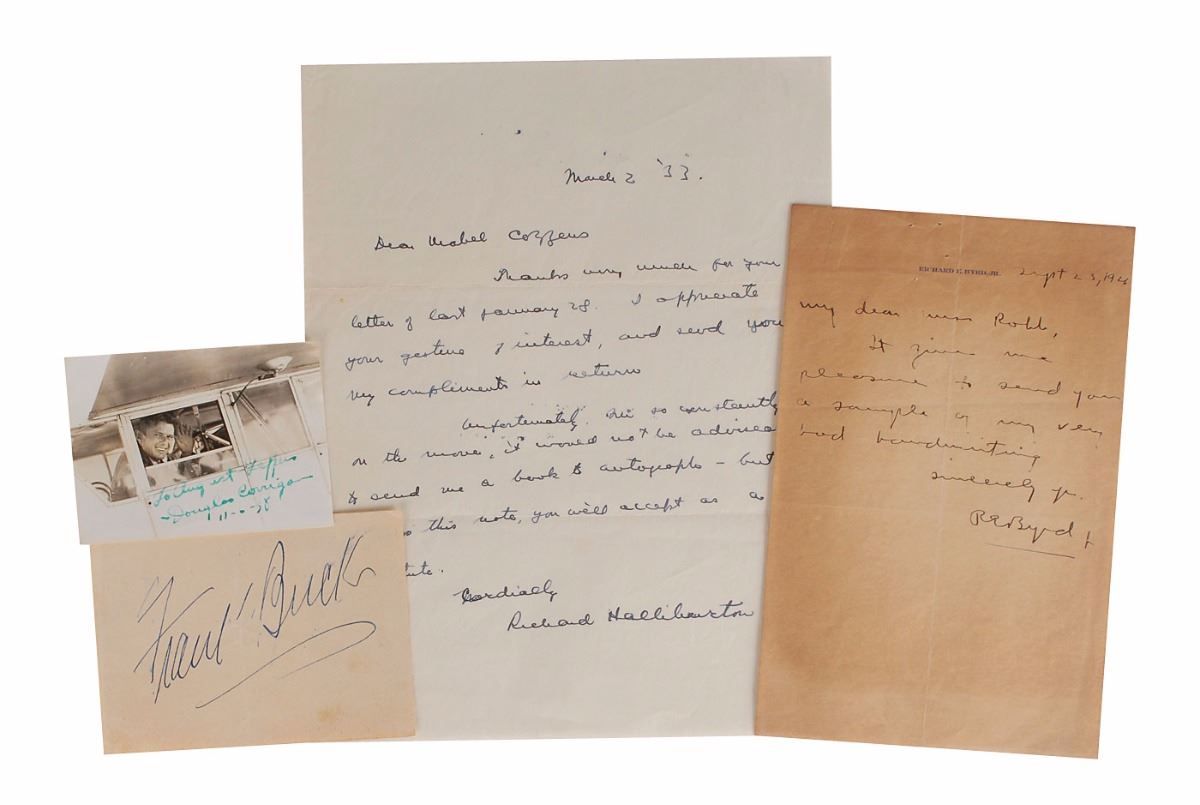 March 2 '33.
Dear Mabel Cozzens
Thanks very much for your
letter of last January 28. I appreciate
your gesture of interest, and send you
my compliments in return
Unfortunately I'm so constantly
on the move, it would not be
to send me a book to autograph – but
this note, you will accept as a
Cordially
Richard Halliburton
RICHARD E. BYRD, JR.
Sept 23, 192
My dear Miss Robb,
It gives me
pleasure to send you
a sample of my very
bad handwriting
Sincerely yr.
REByrd Jr
To August
Douglas Corrigan
Frank Buck